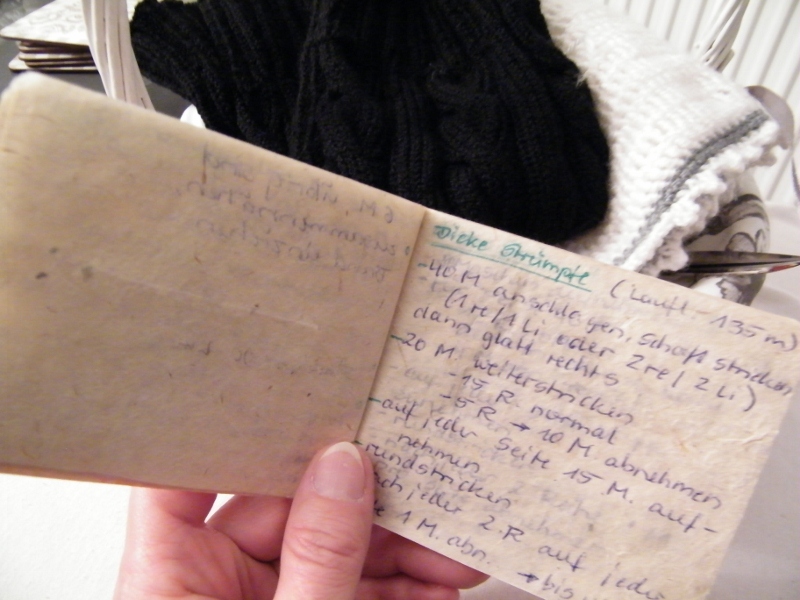 Dicke Strümpfe (Laufl. 135 m)
- 40 M anschlagen, Schaft stricken
(1 re/1 Li oder 2 re/2 Li)
dann glatt rechts
- 20 M. weiterstricken
- 15 R. normal
- 5 R → 10 M abnehmen
- auf jeder Seite 15 M. auf-
nehmen
rundstricken
jeder 2. R auf jeder
1 M. abn. → bis